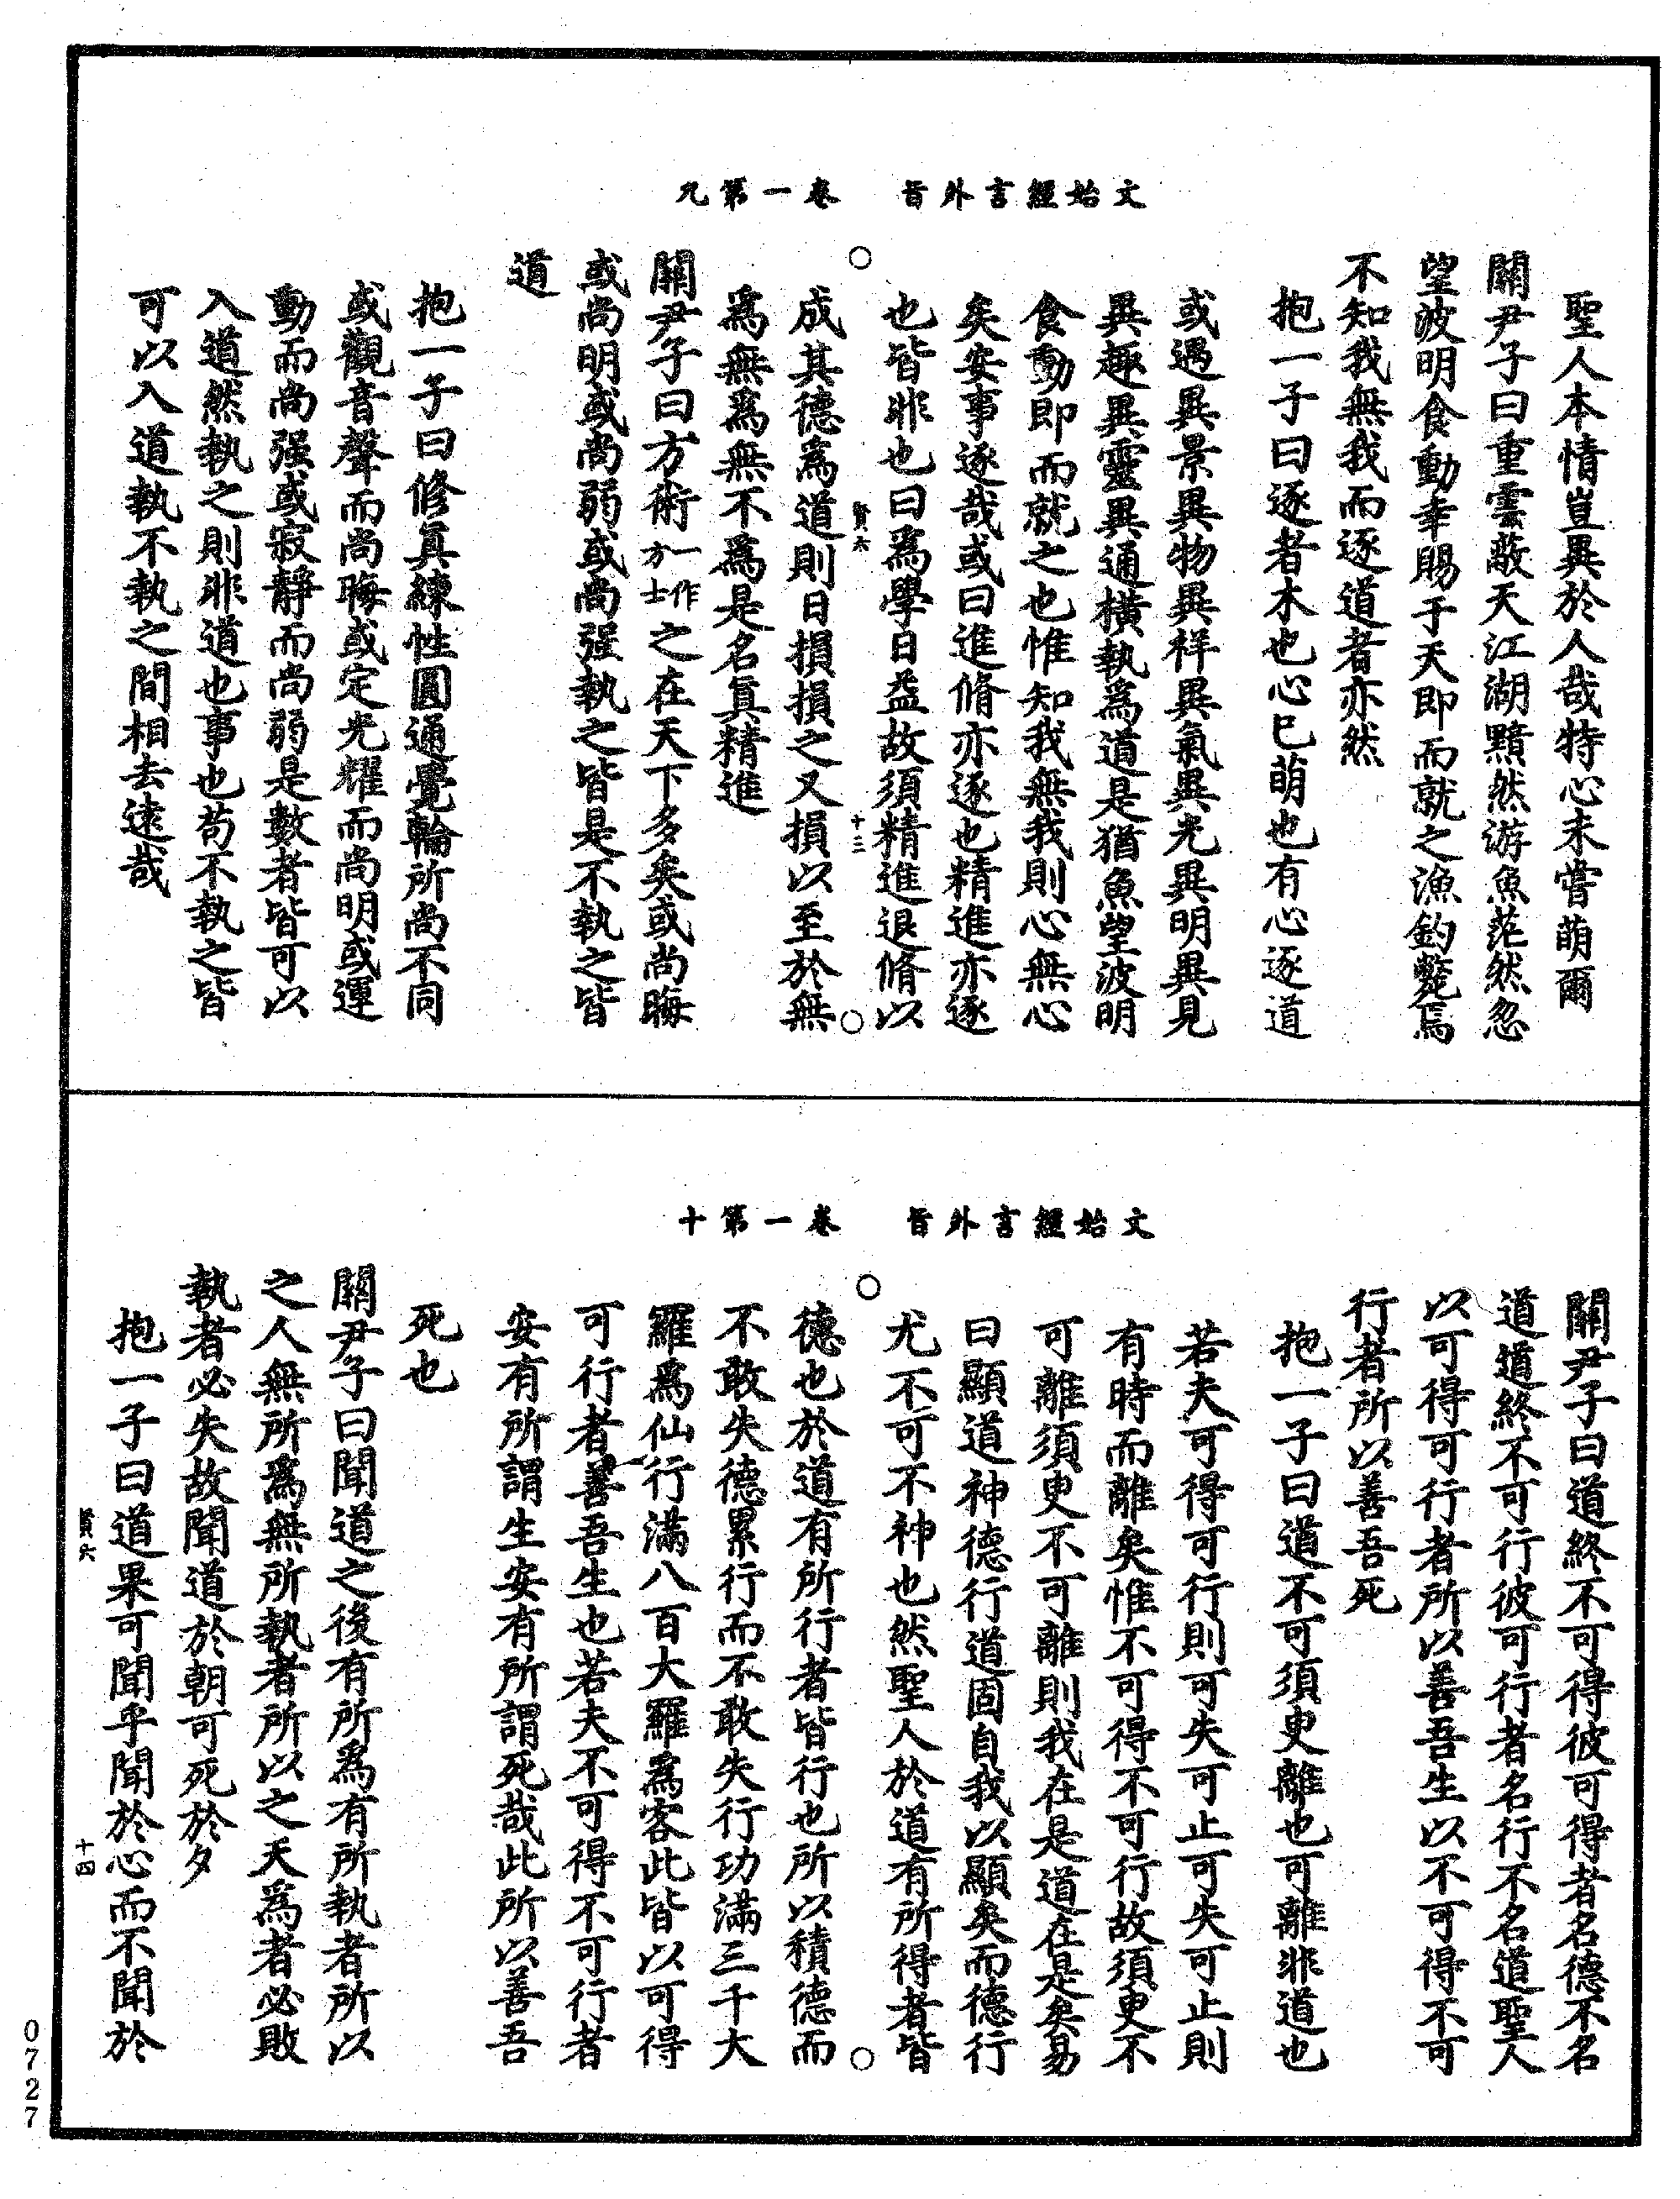 文始經言外旨　卷一第九
聖人本情豈異於人哉特心未嘗萌爾
關尹子曰重雲蔽天江湖黯然游魚茫然忽
望波明食動幸賜于天即而就之漁釣斃焉
不知我無我而逐道者亦然
抱一子曰逐者木也心已萌也有心逐道
或遇異景異物異祥異氣異光異明異見
異趣異靈異通橫執爲道是猶魚望波明
食動即而就之也惟知我無我則心無心
矣安事逐哉或曰進脩亦逐也精進亦逐
也皆非也曰爲學日益故須精進退脩以
賢六　十三
成其德爲道則日損損之又損以至於無
爲無爲無不爲是名真精進
關尹子曰方術一作方士之在天下多矣或尚晦
或尚明或尚弱或尚强執之皆是不執之皆
道
抱一子曰修真練性圓通覺輪所尚不同
或觀音聲而尚晦或定光耀而尚明或運
動而尚强或寂靜而尚弱是數者皆可以
入道然執之則非道也事也苟不執之皆
可以入道執不執之間相去遠哉
文始經言外旨　卷一第十
關尹子曰道終不可得彼可得者名德不名
道道終不可行彼可行者名行不名道聖人
以可得可行者所以善吾生以不可得不可
行者所以善吾死
抱一子曰道不可須臾離也可離非道也
若夫可得可行則可失可止可失可止則
有時而離矣惟不可得不可行故須臾不
可離須臾不可離則我在是道在是矣易
曰顯道神德行道固自我以顯矣而德行
尤不可不神也然聖人於道有所得者皆
德也於道有所行者皆行也所以積德而
不敢失德累行而不敢失行功滿三千大
羅爲仙行滿八百大羅爲客此皆以可得
可行者善吾生也若夫不可得不可行者
安有所謂生安有所謂死哉此所以善吾
死也
關尹子曰聞道之後有所爲有所執者所以
之人無所爲無所執者所以之天爲者必敗
執者必失故聞道於朝可死於夕
抱一子曰道果可聞乎聞於心而不聞於
賢六　十四
0727